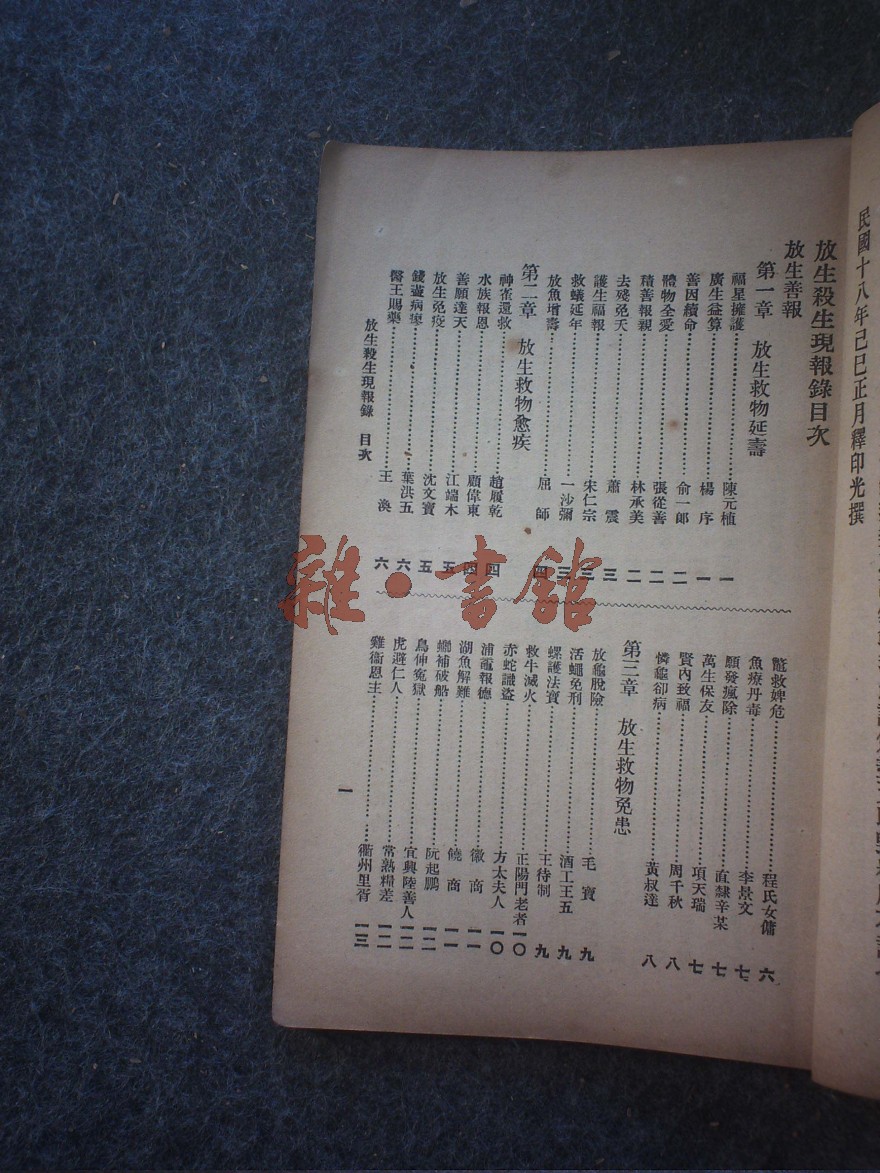 民國十八年己巳正月釋印光撰
放生殺生現報錄目次
放生善報
第一章 放生救物延壽
福星擁護 陳元植 一
廣生益算 楊序 一
善因續命 俞一郎 二
體物全愛 張從善 二
積善報親 林承美 二
去殘免夭 蕭震 三
護生福報 宋仁宗 三
救蟻延年 一沙彌 三
放魚增壽 屈師 四
第二章 放生救物愈疾
神雀還救 趙履乾 四
水族報恩 顧偉東 四
善願達天 江端木 五
放生免疫 沈文寶 五
錢盡病瘳 葉洪五 六
醫王賜藥 王渙 六
鼈救婢危 程氏女傭 六
魚療丹毒 李景文 七
願發瘋除 直隸辛某 七
萬生保友 項天瑞 七
賢內致福 周千秋 八
憐龜卻病 黃叔達 八
第三章 放生救物免患
放龜脫險 毛寶 九
活蠅免刑 酒工王五 九
螺護法寶 王待制 九
救牛滅火 正陽門老者 一〇
赤蛇識盜 方太夫人 一〇
浦黿報德 徽商 一一
湖魚解難 饒商 一一
蠏補破船 阮起鵬 一二
鳥伸冤獄 宜興陸善人 一二
虎避仁人 常熟糧差 一二
雞銜恩主 衢州里胥 一三
放生殺生現報錄 目次
一
雜·書館